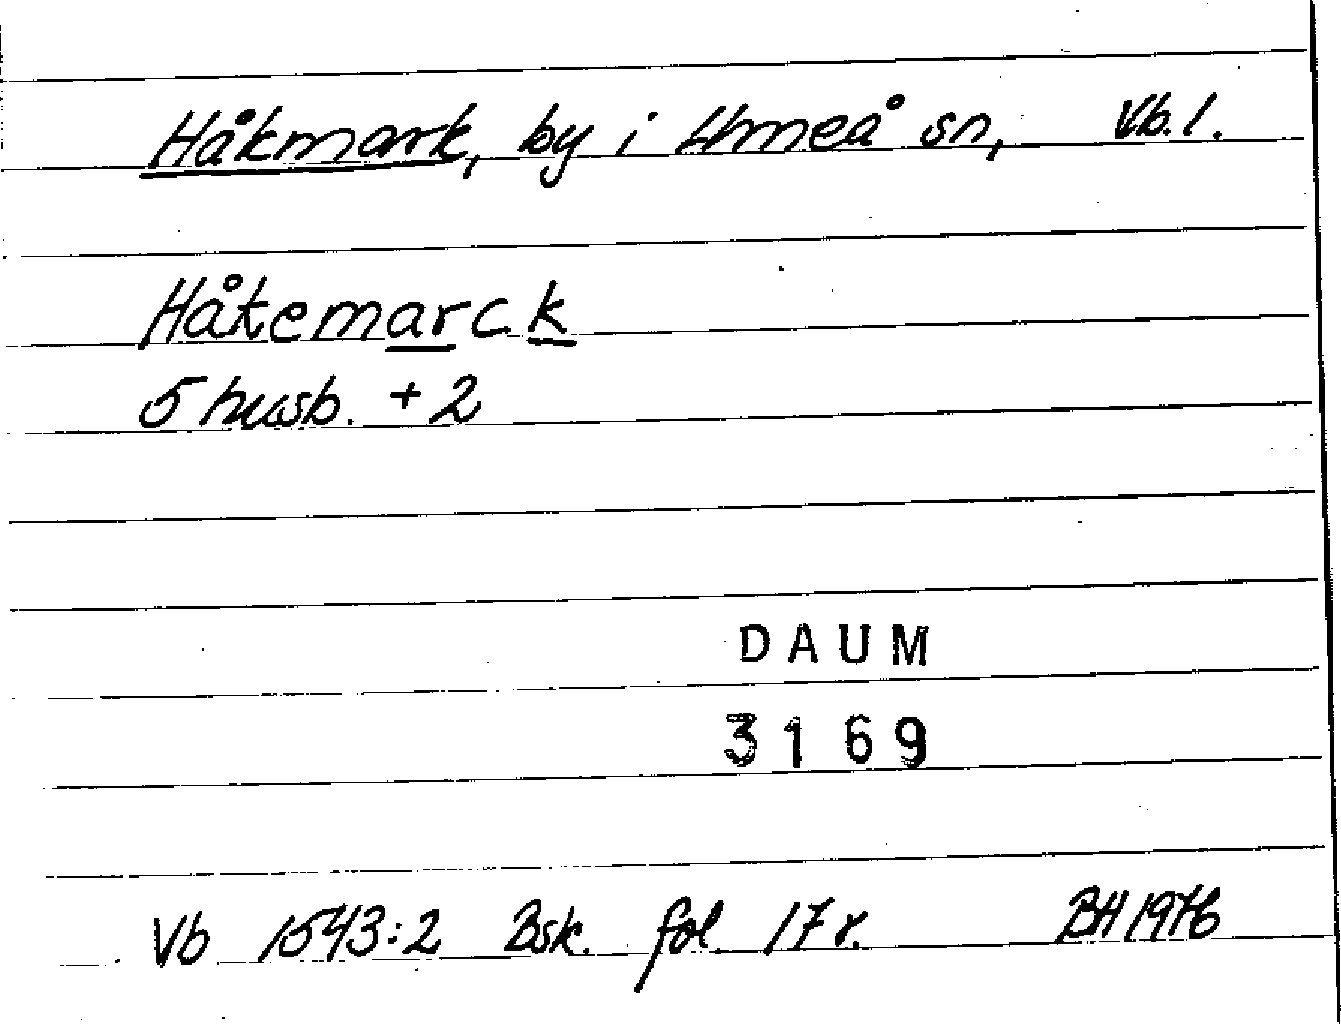 Håkmark, by i Umeå sn, Vb.l.
Håkemarck
5 husb. + 2
DAUM
3169
Vb 1543:2 Bsk. fol. 17 r. BH 1976